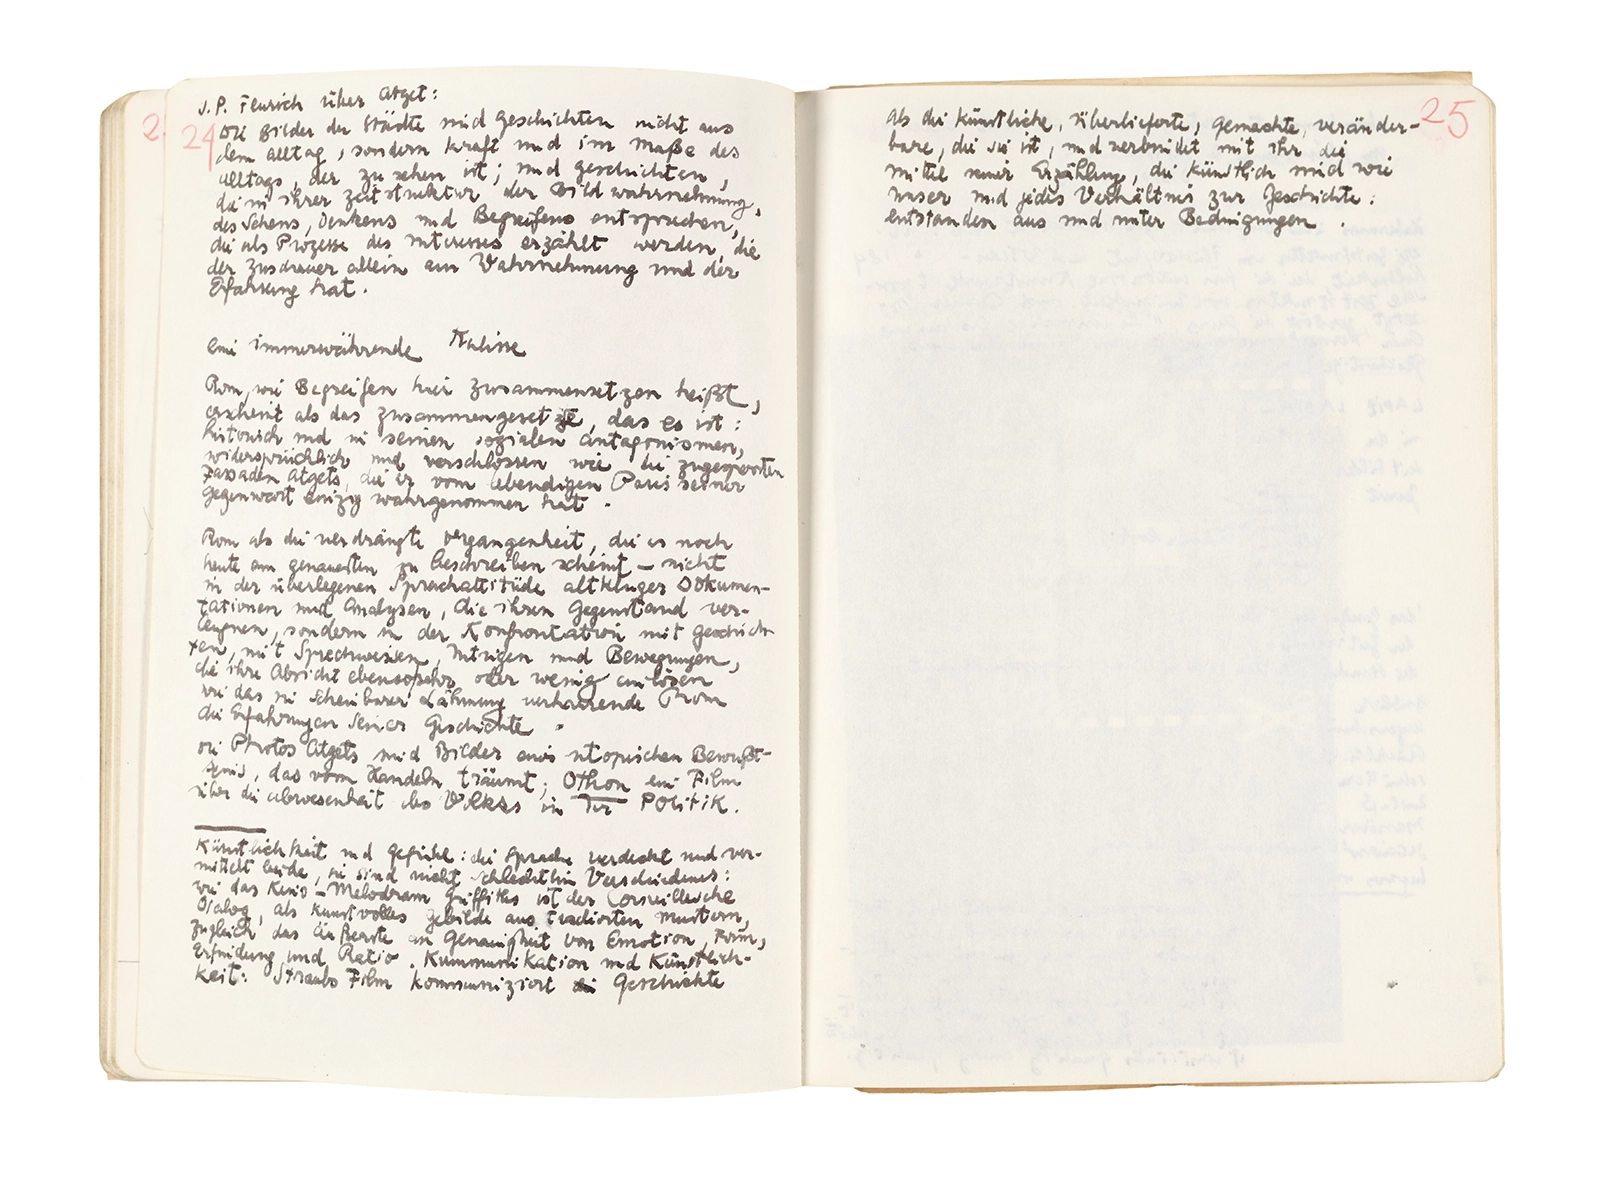 J. P. Fenrich über Atget:
24
die Bilder der Städte sind Geschichten nicht aus
dem Alltag, sondern kraft und im Maße des
Alltags, der zu sehen ist; sind Geschichten,
die in ihrer Zeitstruktur der Bildwahrnehmung,
des Sehens, Denkens und Begreifens entsprechen,
die als Prozesse des Interesses erzählt werden, die
der Zuschauer allein aus Wahrnehmung und der
Erfahrung hat.
eine immerwährende Kulisse
Rom, wie Begreifen hier zusammensetzen heißt,
erscheint als das zusammengesetzte, das es ist:
historisch und in seinen sozialen Antagonismen,
widersprüchlich und verschlossen wie die zugesperrten
Fassaden Atgets, die er vom lebendigen Paris seiner
Gegenwart einzig wahrgenommen hat.
Rom als die verdrängte Vergangenheit, die es noch
heute am genauesten zu beschreiben scheint – nicht
in der überlegenen Sprachattitüde altkluger Dokumen-
tationen und Analysen, die ihren Gegenstand ver-
leugnen, sondern in der Konfrontation mit Geschich-
ten, mit Sprechweisen, Intrigen und Bewegungen,
die ihre Absicht ebensosehr oder wenig einlösen
wie das in scheinbarer Lähmung verharrende Rom
die Erfahrungen seiner Geschichte.
die Photos Atgets sind Bilder eines utopischen Bewußt-
seins, das vom Handeln träumt; Othon ein Film
über die Abwesenheit des Volkes in der POLITIK.
Künstlichkeit und Gefühle: die Sprache verdeckt und ver-
mittelt beide, sie sind nicht schlechthin Verschiedenes:
wie das Kino-Melodram Griffiths ist der Corneillesche
Dialog, als kunstvolles Gebilde aus tradierten Mustern,
zugleich das Äußerste an Genauigkeit von Emotion, Form,
Erfindung und Ratio. Kommunikation und Künstlich-
keit: Straubs Film kommuniziert die Geschichte
25
als die künstliche, überlieferte, gemachte, veränder-
bare, die sie ist, und verbindet mit ihr die
Mittel seiner Erzählung, die künstlich sind wie
unser und jedes Verhältnis zur Geschichte:
entstanden aus und unter Bedingungen.